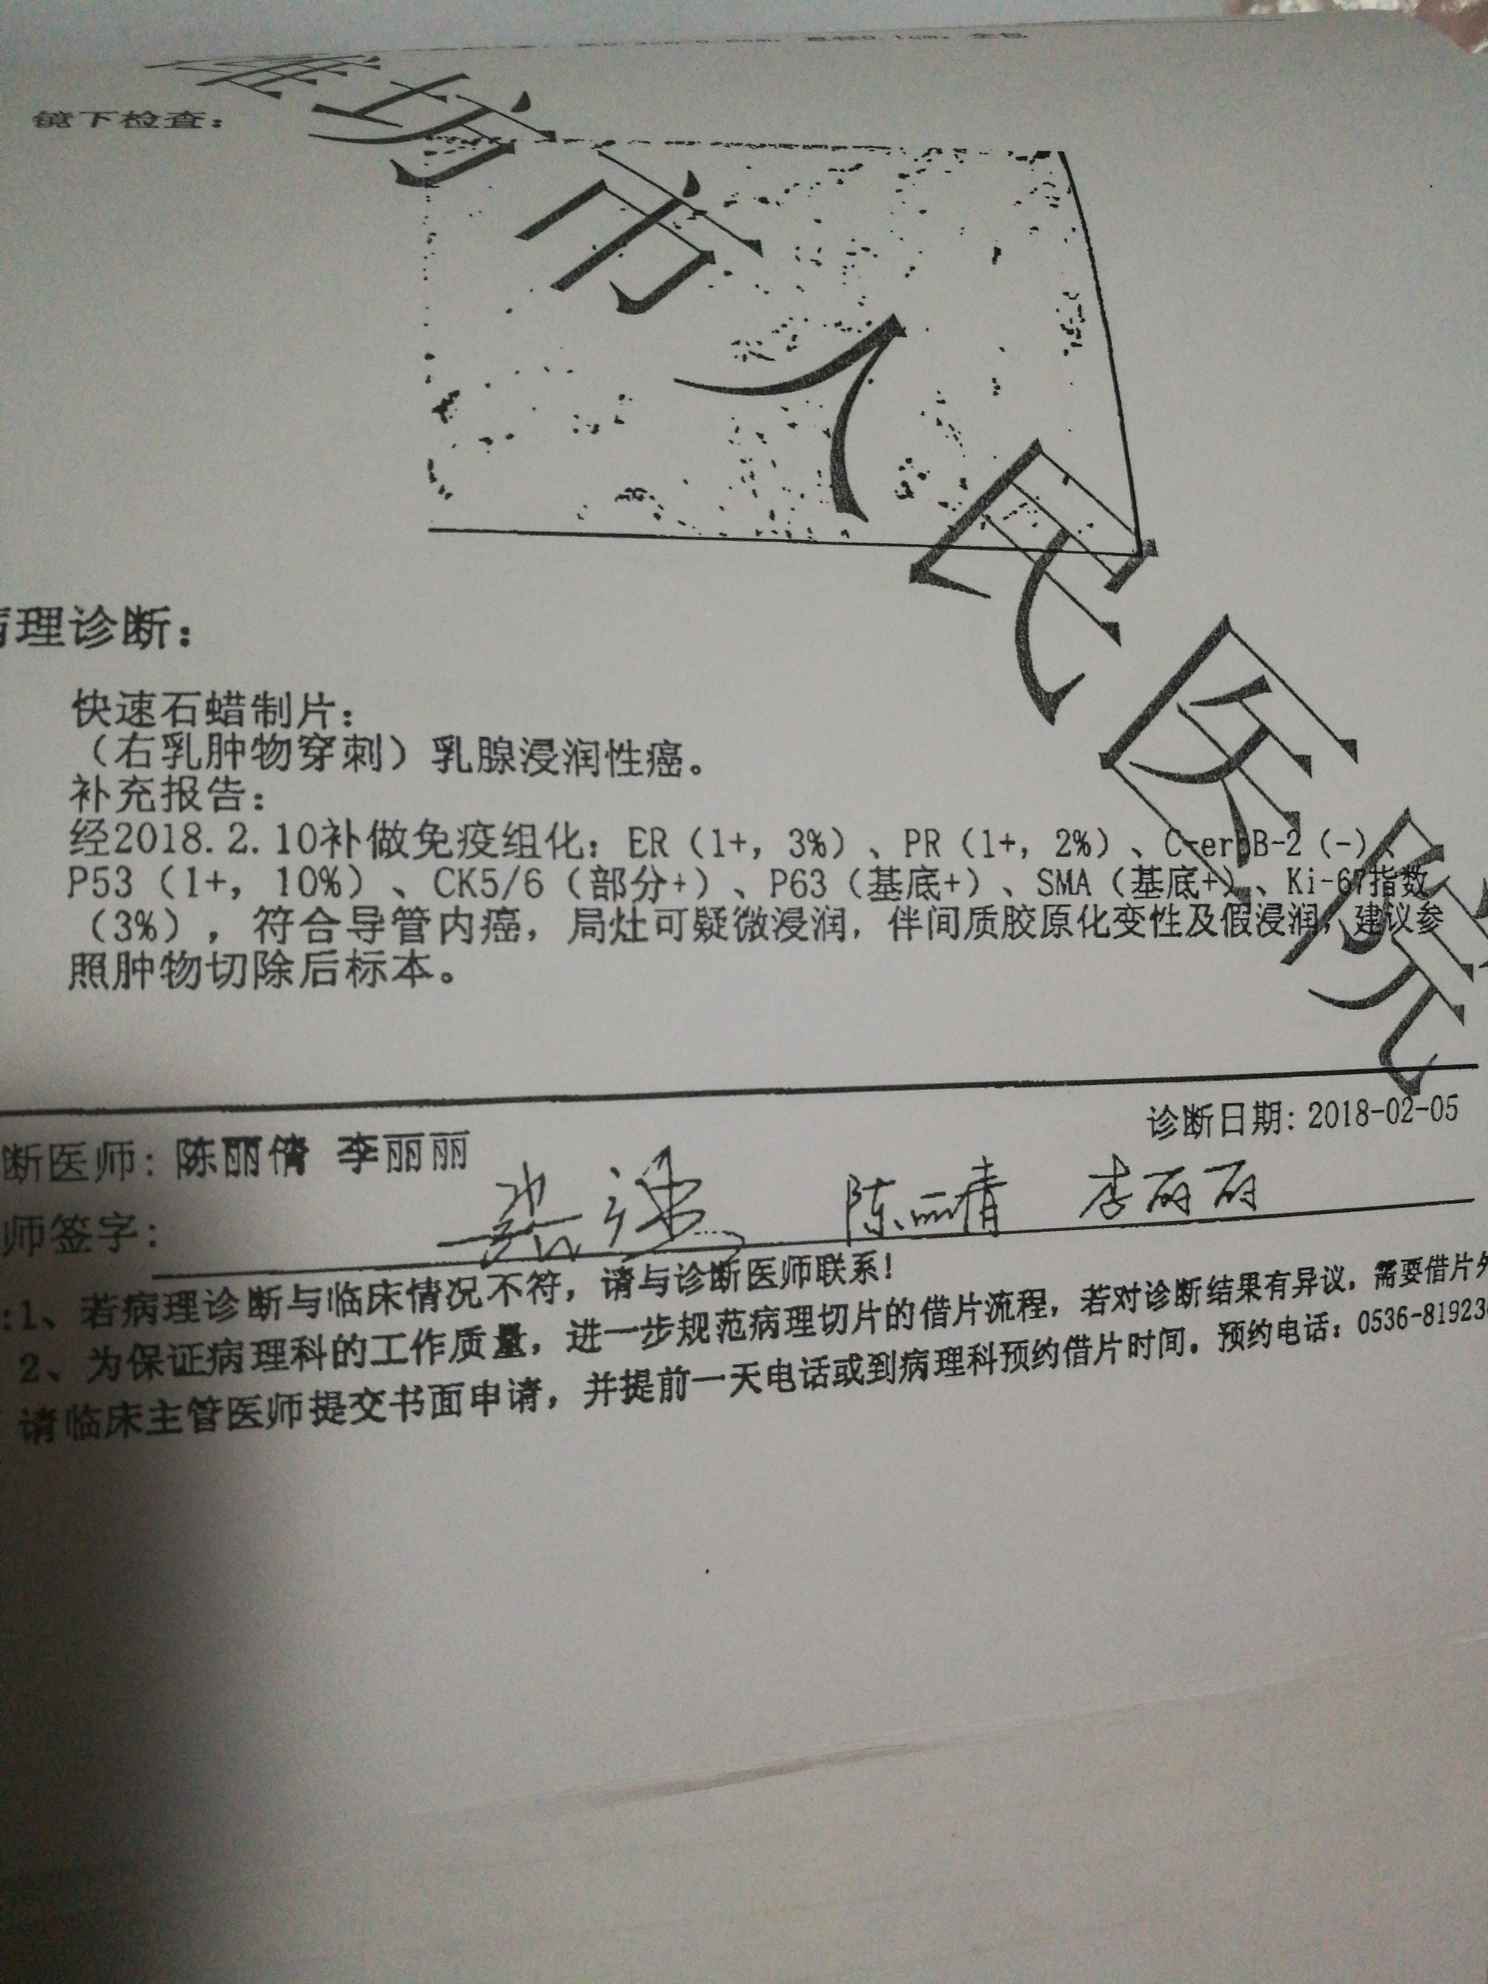 镜下检查：
潍坊市人民医院
理诊断：
快速石蜡制片：
（右乳肿物穿刺）乳腺浸润性癌。
补充报告：
经2018.2.10补做免疫组化：ER（1+，3%）、PR（1+，2%）、C-erbB-2（-）、
P53（1+，10%）、CK5/6（部分+）、P63（基底+）、SMA（基底+）、Ki-67指数
（3%），符合导管内癌，局灶可疑微浸润，伴间质胶原化变性及假浸润，建议参
照肿物切除后标本。
诊断日期：2018-02-05
断医师：陈丽倩 李丽丽
师签字： 陈丽倩 李丽丽
：1、若病理诊断与临床情况不符，请与诊断医师联系！
2、为保证病理科的工作质量，进一步规范病理切片的借片流程，若对诊断结果有异议，需要借片外
请临床主管医师提交书面申请，并提前一天电话或到病理科预约借片时间。预约电话：0536-81923